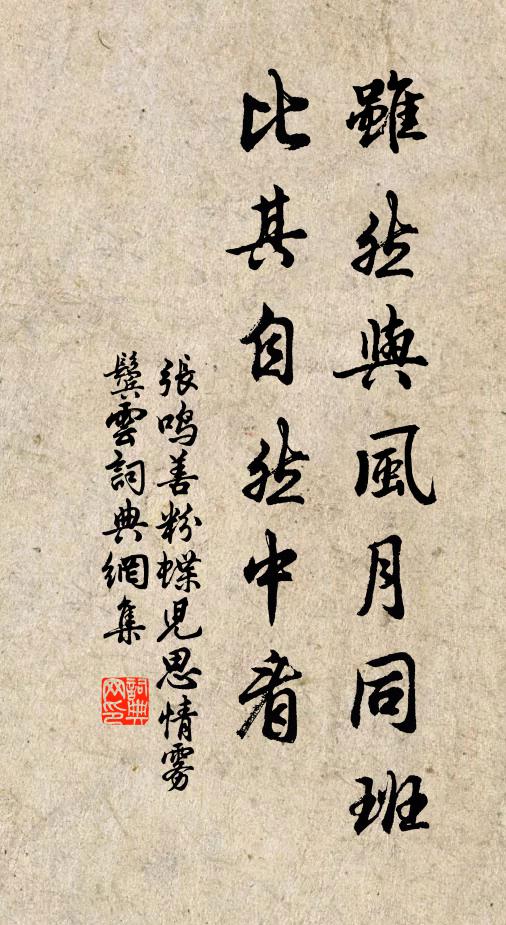 雖然與風月同班
比其自然中看
張鳴善粉蝶児思情雾
鬓雲詞典網集
詞典
网印